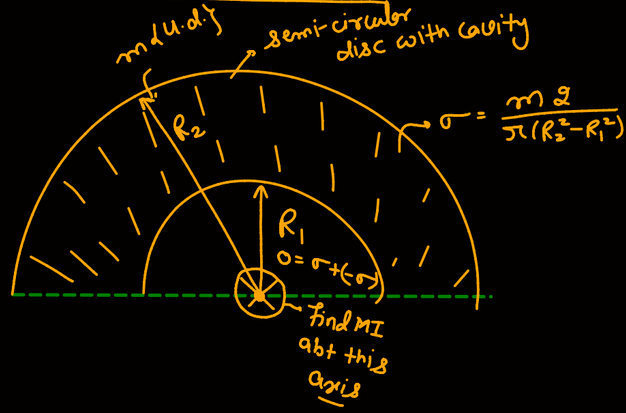 m{u.d.}
semi-circular
disc with cavity
σ = m2 / π(R₂²-R₁²)
R₂
R₁
0 = σ+(-σ)
find MI
abt this
axis